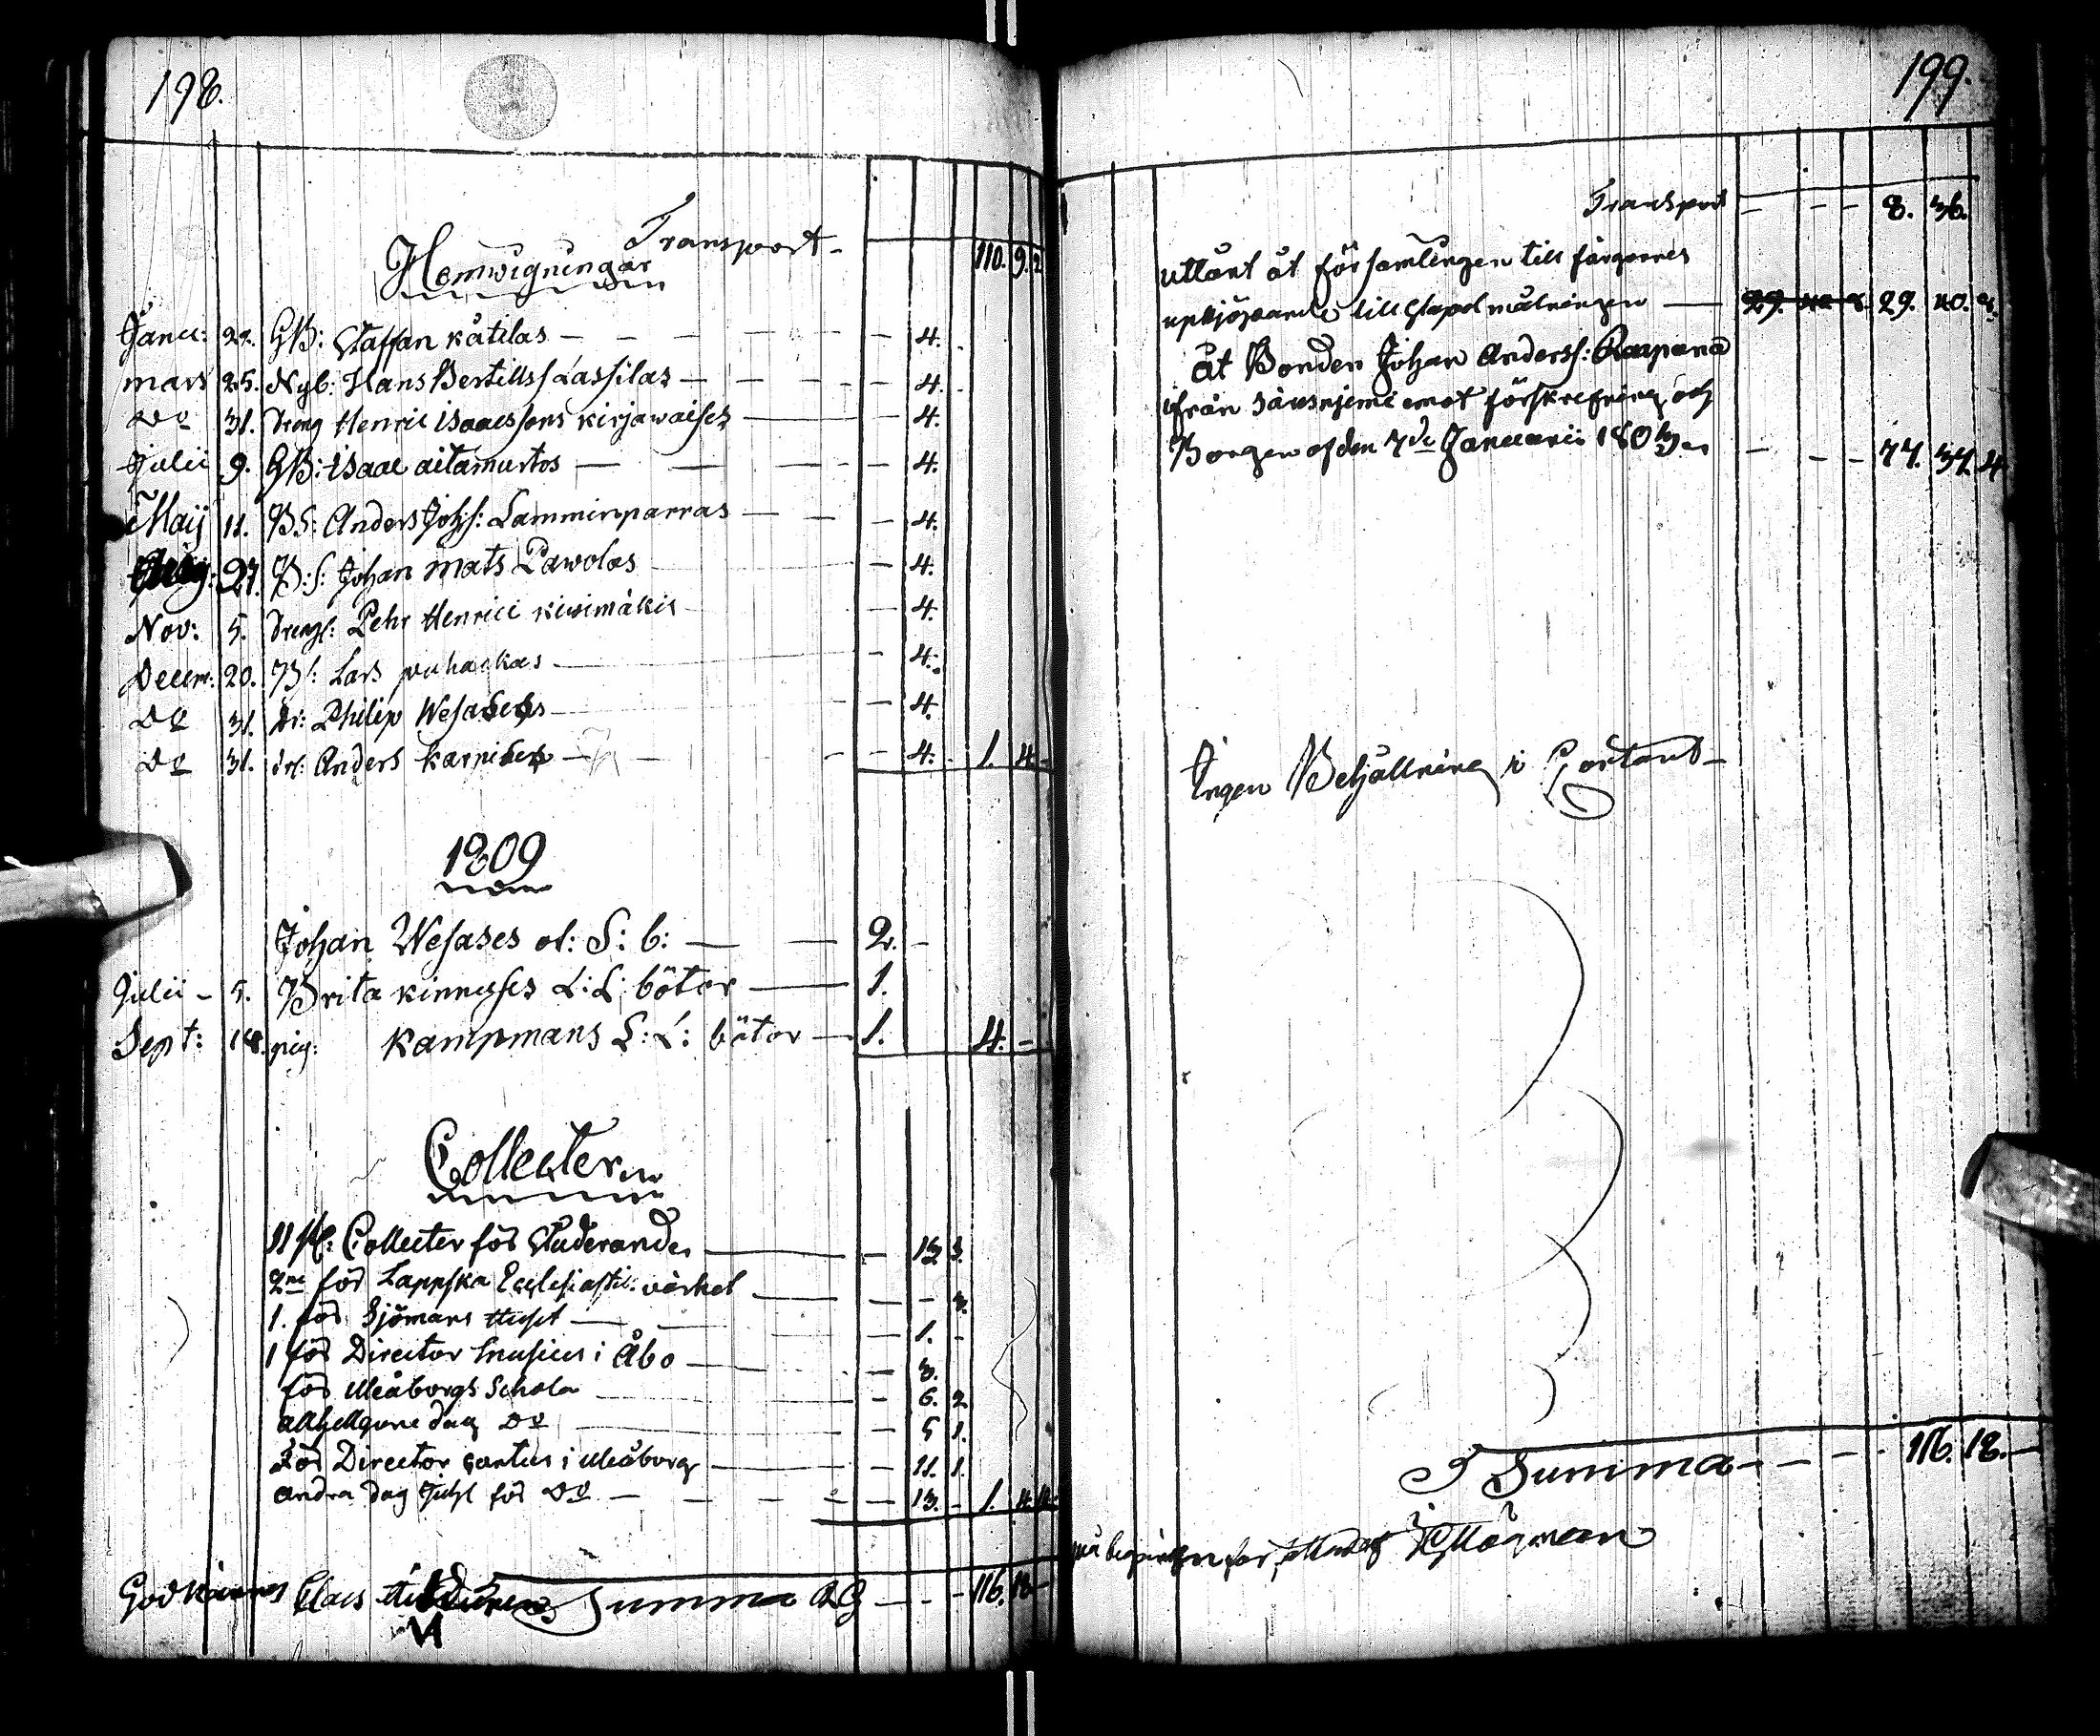 198.
Transport - 110. 9. 2
Hemwigningar
Janu: 29. GB: Staffan kåtilas - 4.
mars 25. Nyb: Hans Bertills: Lassilas - 4.
Do 31. Dreng Henric isaacssons kirjawaises - 4.
Julii 9. GB: isaac aitamurtos - 4.
Maij 11. BS: Anders Johs: Lamminparras - 4.
Aug: 27. B:S: Johan mats Pawolas - 4.
Nov: 5. Drengs: Pehr Henrici kiwimäkis - 4.
Decem: 20. Bs: Lars puhackas - 4.
Do 31. Dr: Philip Wesases - 4.
Do 31. drs: Anders karnises - 4. 1. 4.
1809
Johan Wesases ol: S: b: - 2. -
Julii - 5. Brita kinnuses L: L: böter - 1.
Sept: 18. pig: kampmans L: L: böter - 1. 4. -
Collecter
11 st: Collecter för Studerande - 13 3.
2ne för Lappska Ecclesiastik: värket - - 3.
1. för Sjömans Huset - 1. -
1 för Director Musices i Åbo - 3.
för Uleåborgs Schola - 6. 2
allhelgone dag Do - 5 1.
För Director cantus i Uleåborg - 11. 1.
andra dag Juhl för Do - 13. - 1. 4. 4.
Godkännes Claes Summa RG - 116. 18 -
199.
Transport - - - 8. 36.
utlånt åt församlingen till färgornes
upkjöpande till Stapel målningen - 29. 40. 8. 29. 40. 8.
åt Bonden Johan Anderss: Raapana
ifrån Säresniemi emot förskrefning och
Borgen af den 7de Januarii 180 - - - 77. 37. 4
Ingen Behållning i Contant -
Summa - - - 116. 18. -
på begäran